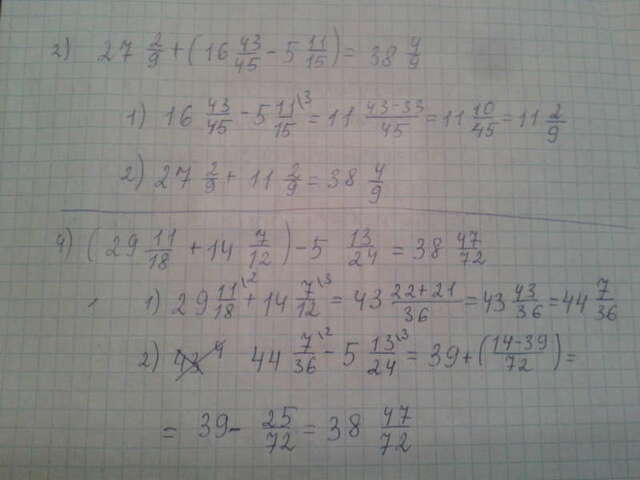 2) 27 2/9 + (16 43/45 - 5 11/15) = 38 4/9
1) 16 43/45 - 5 11/15\3 = 11 43-33/45 = 11 10/45 = 11 2/9
2) 27 2/9 + 11 2/9 = 38 4/9
4) (29 11/18 + 14 7/12) - 5 13/24 = 38 47/72
1) 29 11/18\2 + 14 7/12\3 = 43 22+21/36 = 43 43/36 = 44 7/36
2) 44 7/36\2 - 5 13/24\3 = 39 + (14-39/72) =
= 39 - 25/72 = 38 47/72